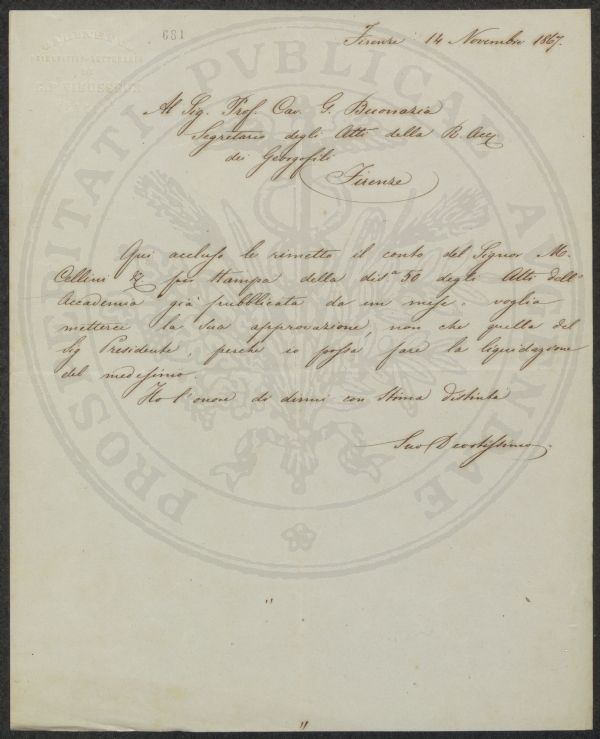 681
GABINETTO
SCIENTIFICO-LETTERARIO
DI
G. P. VIEUSSEUX
Firenze 14 Novembre 1867.
Al Sig. Prof. Cav. G. Buonazia
Segretario degli Atti della R. Acc.
dei Georgofili
Firenze
Qui accluso le rimetto il conto del Signor M.
Cellini & per stampa della disa 50 degli Atti dell'
Accademia già pubblicata da un mese. voglia
metterci la sua approvazione, non che quella del
Sig Presidente, perche io possa fare la liquidazione
del medesimo.
Ho l'onore di dirmi con stima distinta
Suo Devotissimo.
PROSPERITATI PUBLICAE AUGENDAE